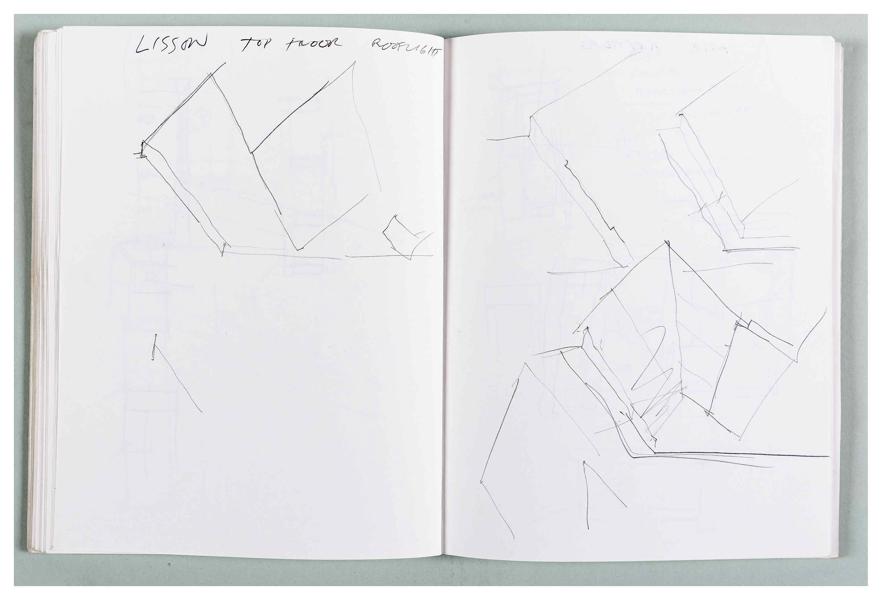 LISSON TOP FLOOR ROOFLIGHT